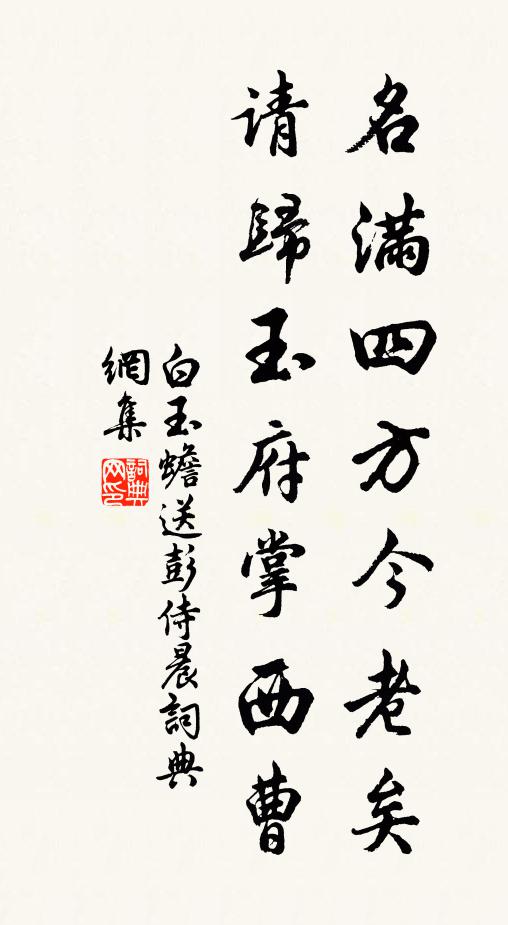 名滿四方今老矣
请歸玉府掌西曹
白玉蟾送彭侍晨詞典
網集
詞典網印